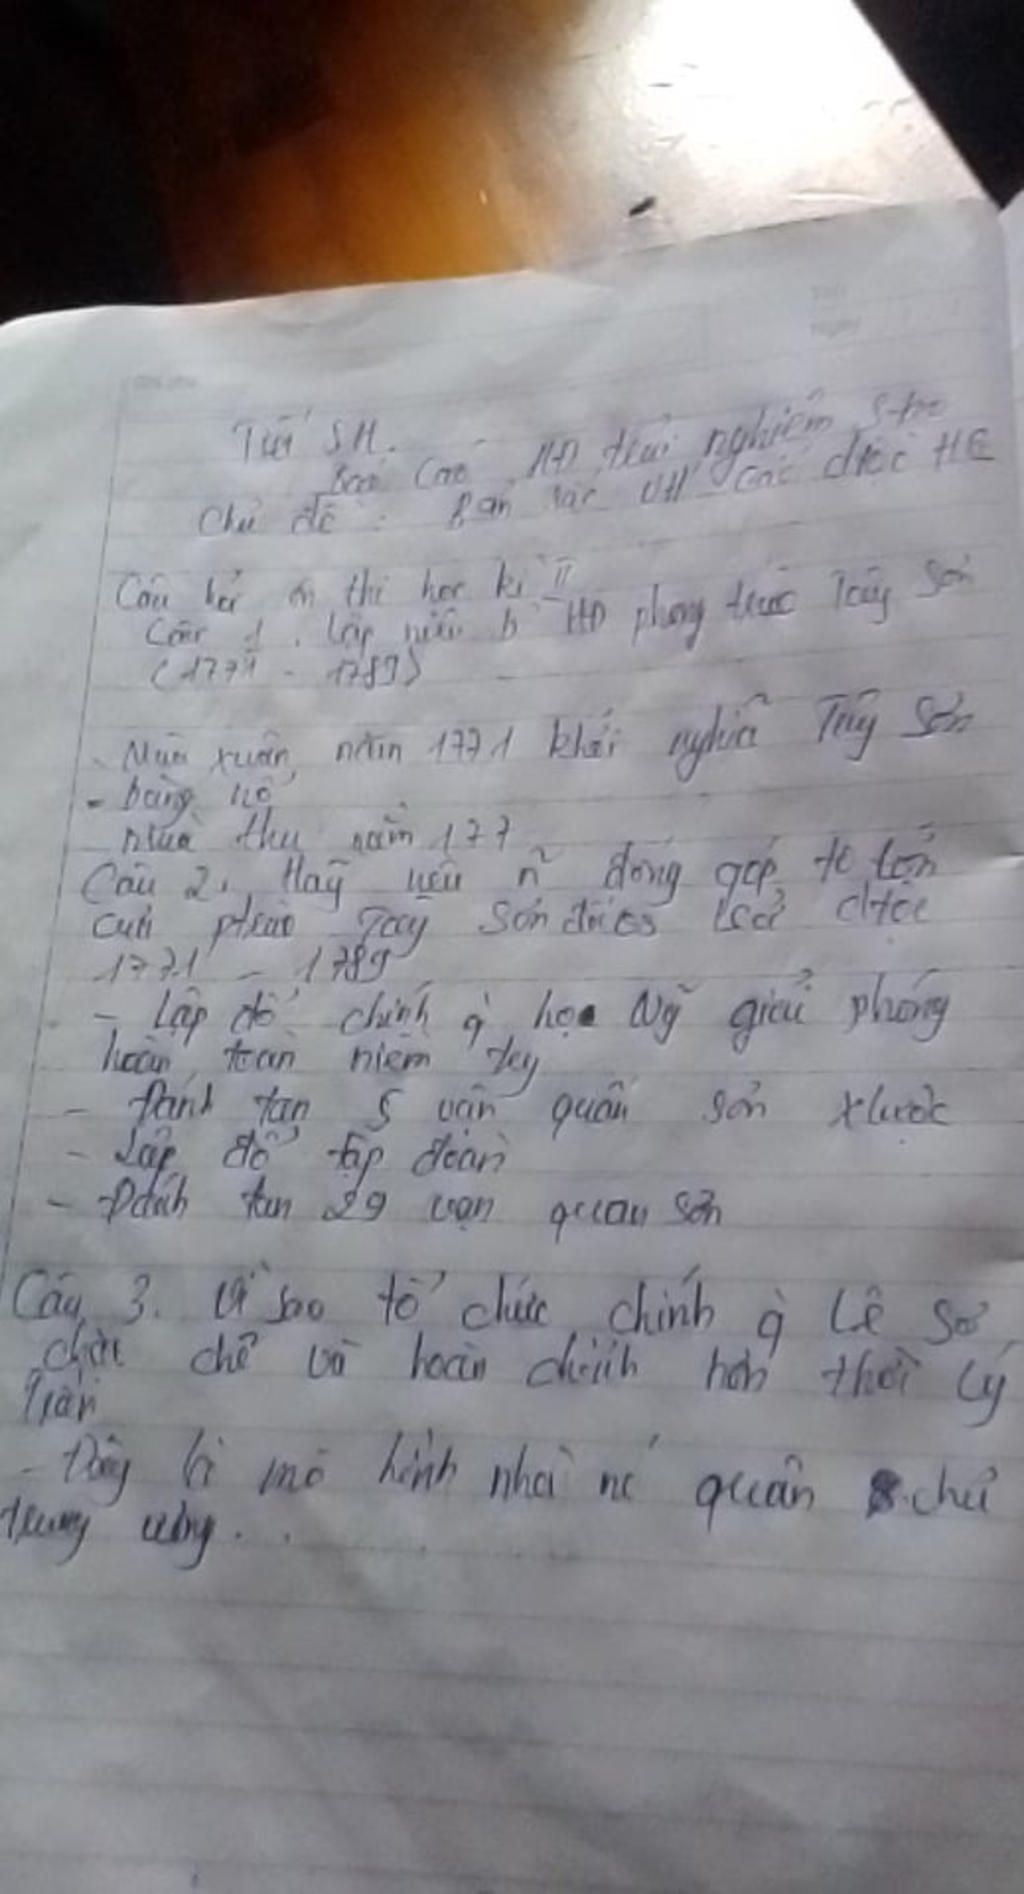 Tiết SH.
Báo Cáo HĐ trải nghiệm S tạo
Chủ đề: Bản sắc VH các dtộc HG
Câu hỏi ôn thi học kì II
Câu 1. Lập niên b HĐ phong trào Tây Sơn
(1771 - 1789)
- Mùa xuân năm 1771 khởi nghĩa Tây Sơn
- bùng nổ
Mùa thu năm 177
Câu 2. Hãy nêu n~ đóng góp to lớn
của ptrào Tây Sơn đối lsử dtộc
1771 - 1789
- Lập đổ chính q họ Ng~ giải phóng
hoàn toàn
- Đánh tan 5 vạn quân xlược
- Lập đổ tập đoàn
- Đánh tan 29 vạn quân
Câu 3. Vì sao tổ chức chính q Lê Sơ
chặt chẽ và hoàn chỉnh hơn thời Lý
Trần
- Đây là mô hình nhà nc quân chủ
trung ương...